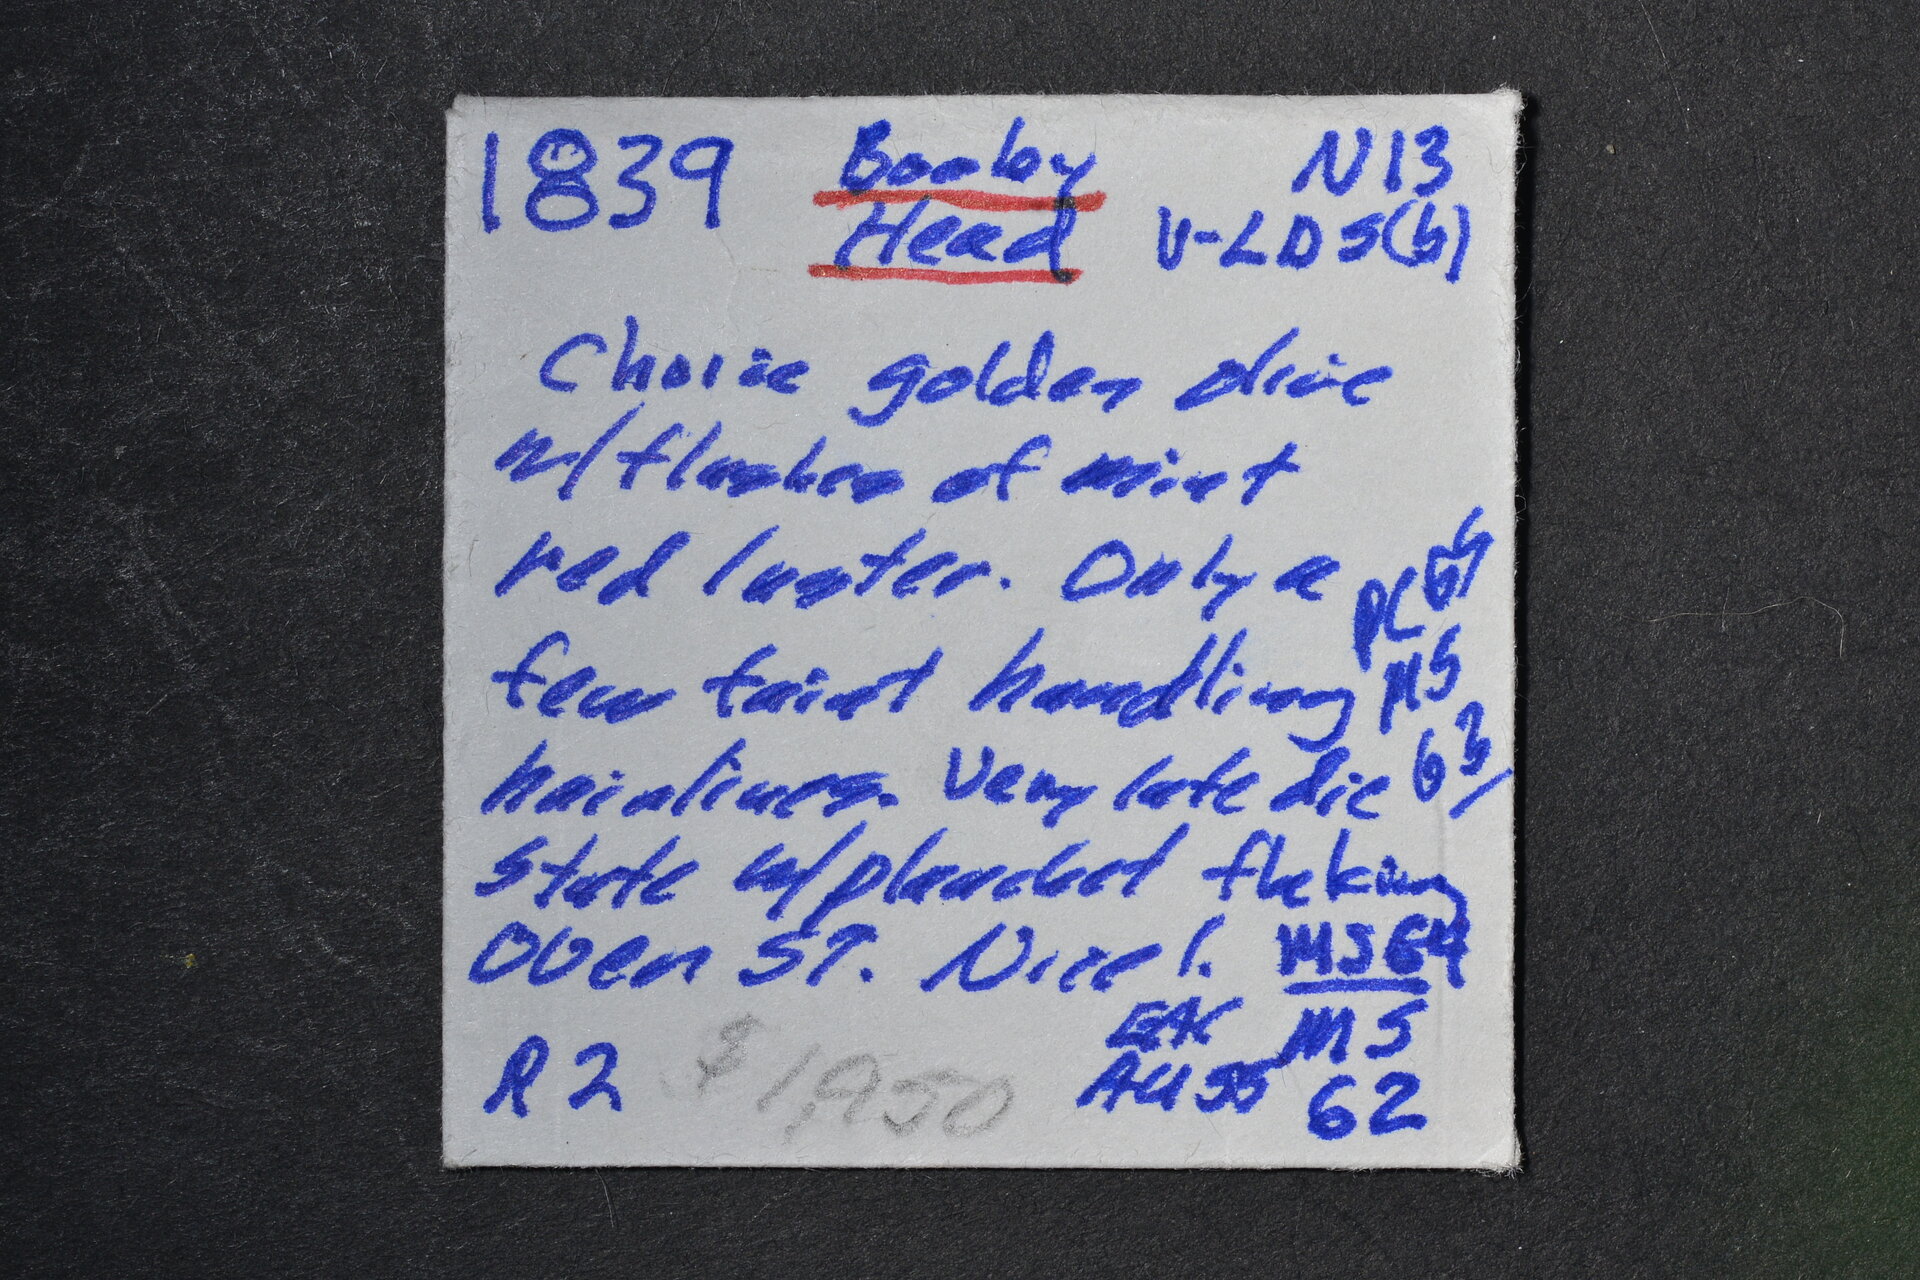 1839 Booby N13
Head V-LDS(b)
Choice golden olive
w/flashes of mint
red luster. Only a
few faint handling
hairlines. Very late die
state w/planchet flaking
Over ST. Nice!. MS64
PC 65
MS
63
EAC MS
AU55 62
R2 $1,950